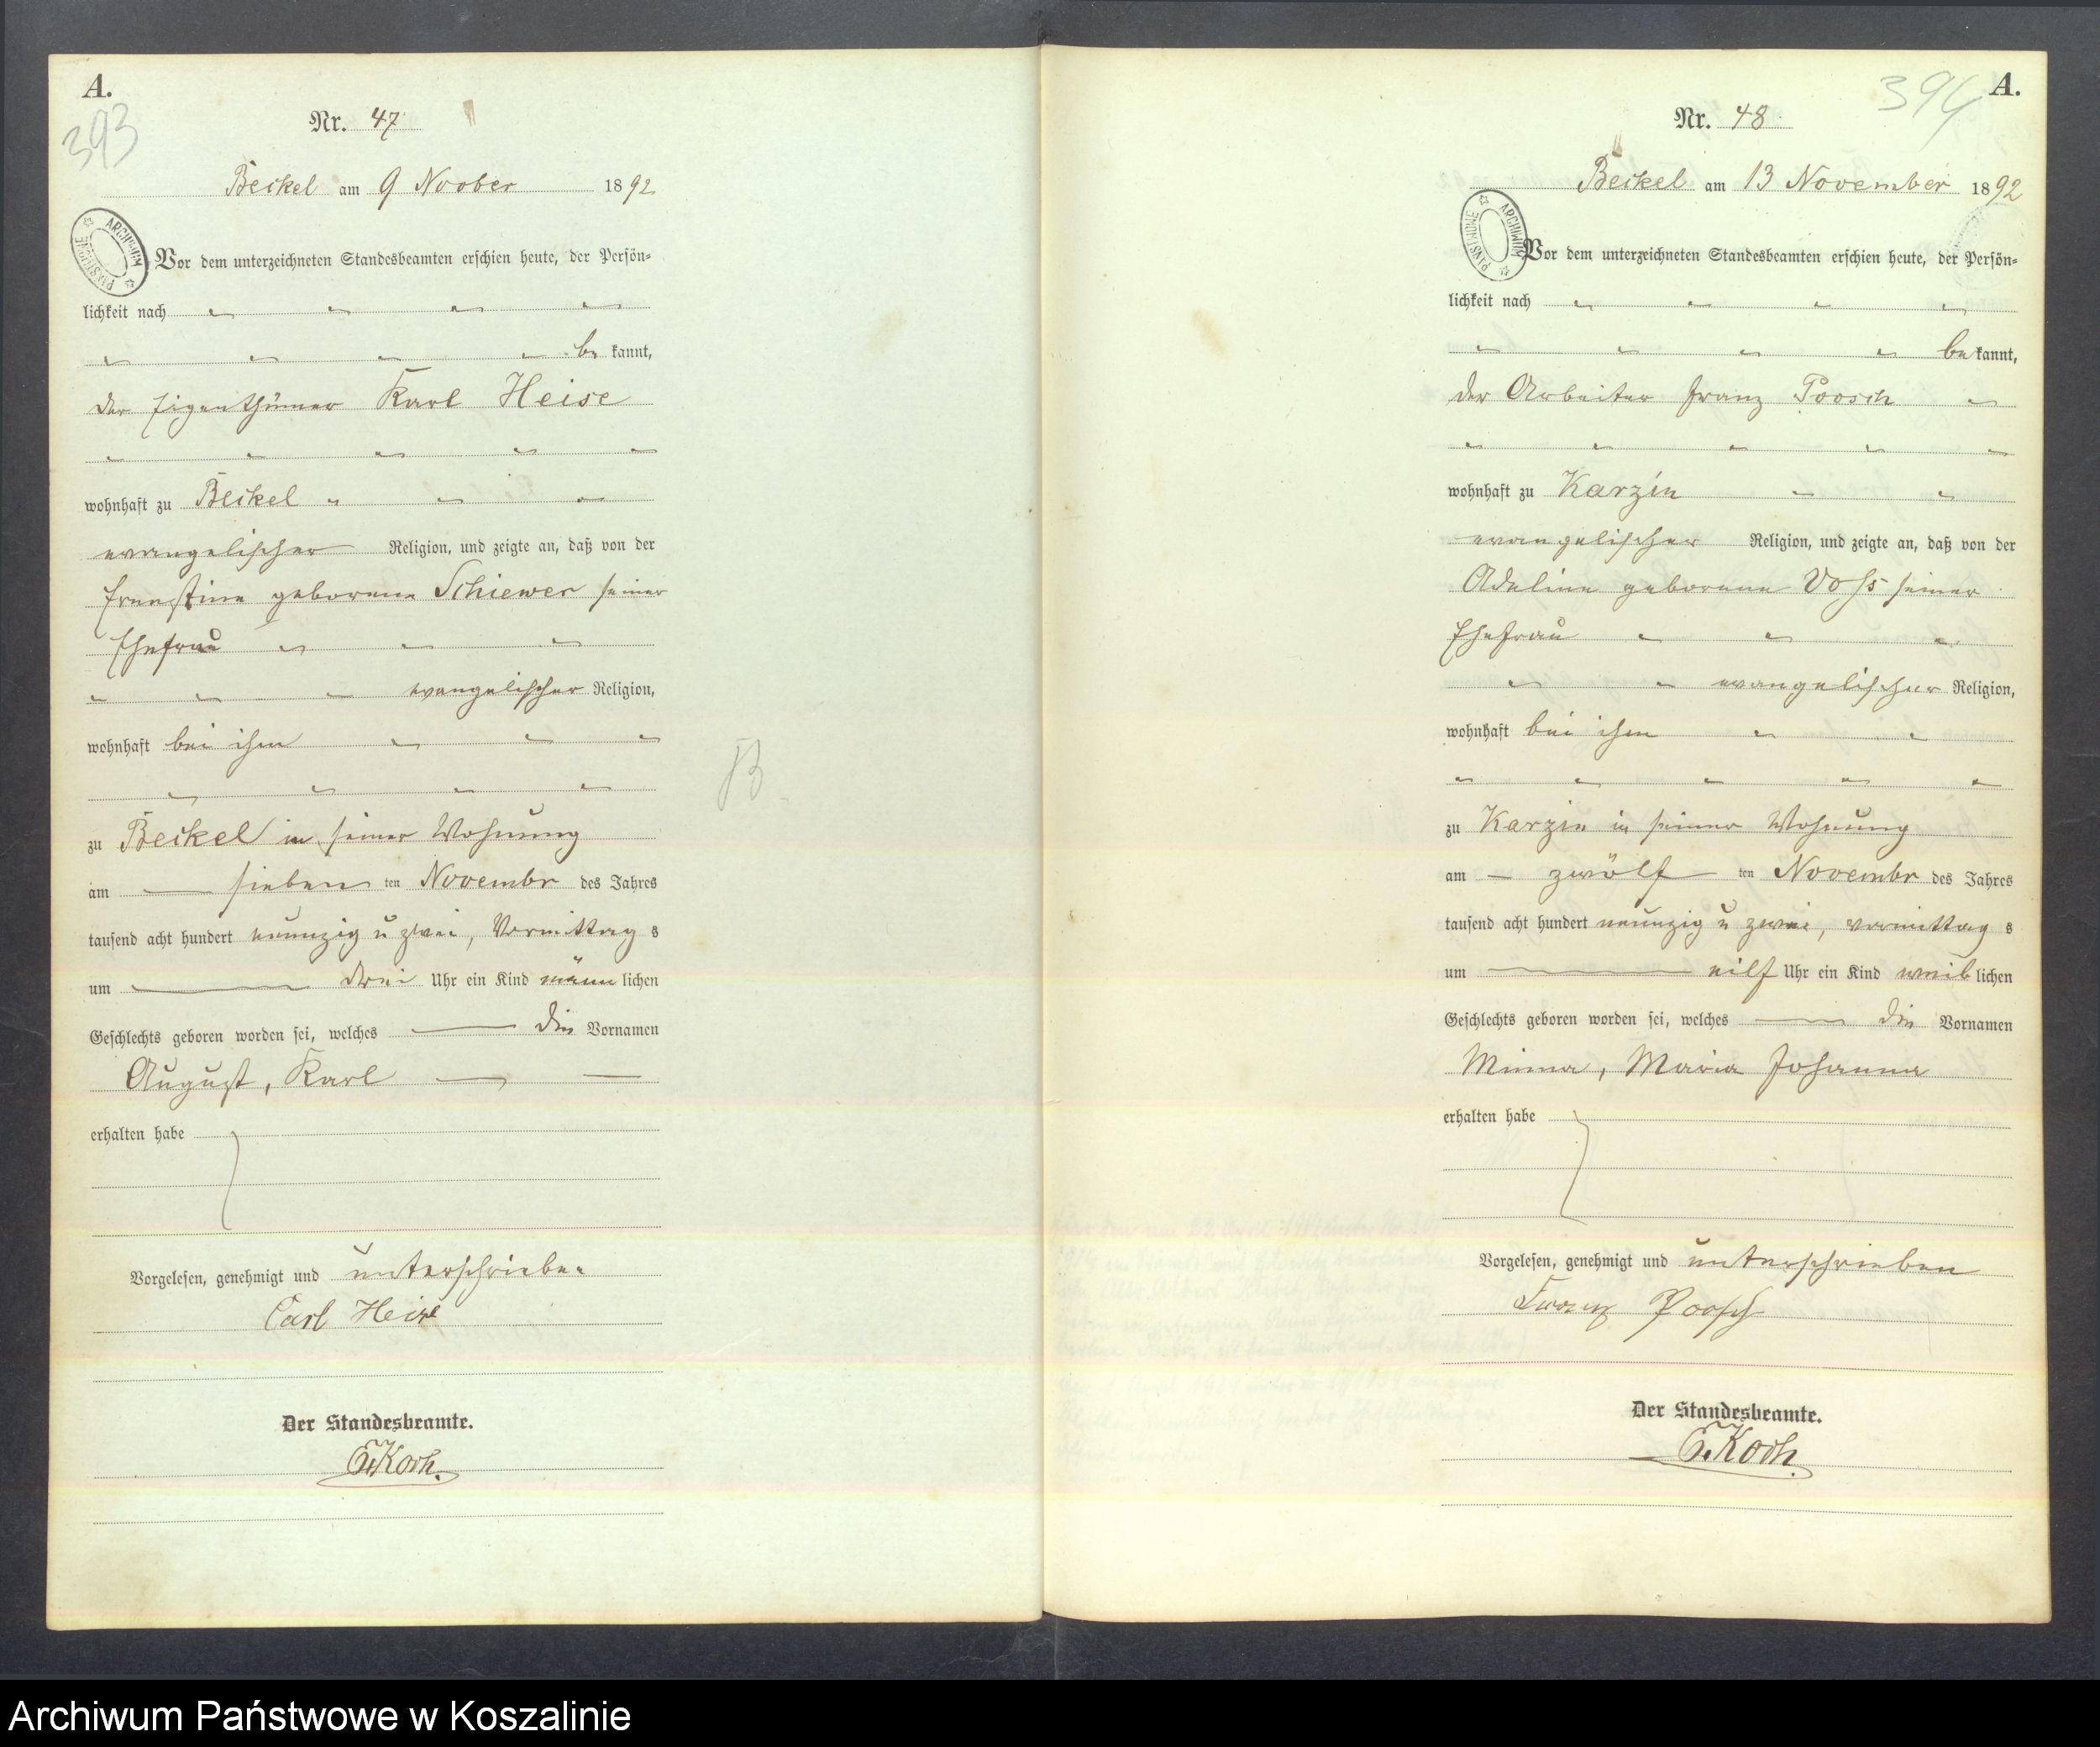 A.
393
Nr. 47
Beckel am 9 Noober 1892
ARCHIWUM PAŃSTWOWE
Vor dem unterzeichneten Standesbeamten erschien heute, der Persön-
lichkeit nach
be kannt,
der Eigenthümer Karl Heise
wohnhaft zu Beckel
evangelischer Religion, und zeigte an, daß von der
Ernestine geborene Schiewer seiner
Ehefrau
evangelischer Religion,
wohnhaft bei ihm
zu Beckel in seiner Wohnung
am sieben ten Novembr des Jahres
tausend acht hundert neunzig u zwei, Vormittag s
um drei Uhr ein Kind männ lichen
Geschlechts geboren worden sei, welches die Vornamen
August, Karl
erhalten habe
Vorgelesen, genehmigt und unterschrieben
Carl Heise
Der Standesbeamte.
E. Koch.
B
394
A.
Nr. 48
Beckel am 13 November 1892
ARCHIWUM PAŃSTWOWE
Vor dem unterzeichneten Standesbeamten erschien heute, der Persön-
lichkeit nach
be kannt,
der Arbeiter Franz Poosch
wohnhaft zu Karzin
evangelischer Religion, und zeigte an, daß von der
Adeline geborene Voss seiner
Ehefrau
evangelischer Religion,
wohnhaft bei ihm
zu Karzin in seiner Wohnung
am zwölf ten Novembr des Jahres
tausend acht hundert neunzig u zwei, vormittag s
um eilf Uhr ein Kind weib lichen
Geschlechts geboren worden sei, welches die Vornamen
Minna, Maria Johanna
erhalten habe
Vorgelesen, genehmigt und unterschrieben
Franz Poosch
Der Standesbeamte.
E. Koch.
Archiwum Państwowe w Koszalinie